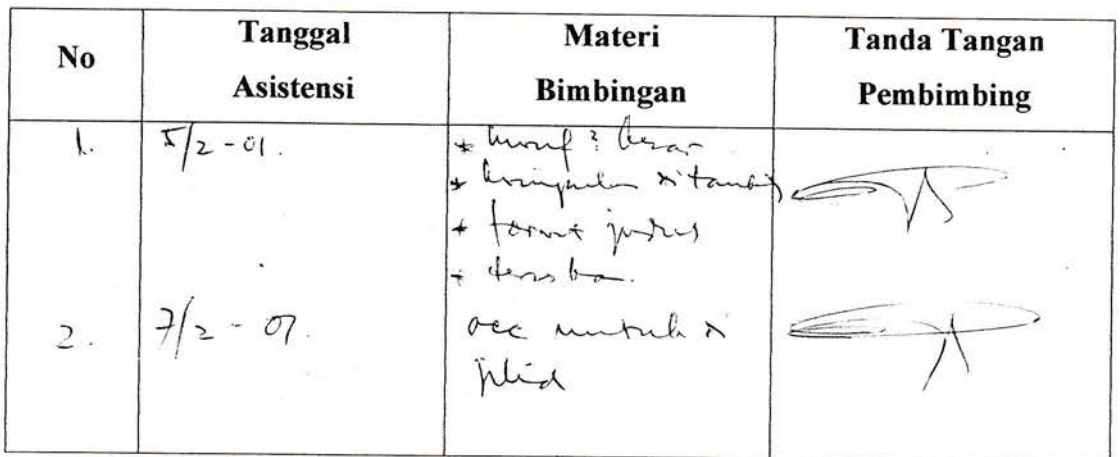 No
Tanggal
Asistensi
Materi
Bimbingan
Tanda Tangan
Pembimbing
1.
5/2 - 01.
* huruf2 besar
* kesimpulan ditambah
* format judul
* teruskan.
2.
7/2 - 07.
acc untuk di
jilid